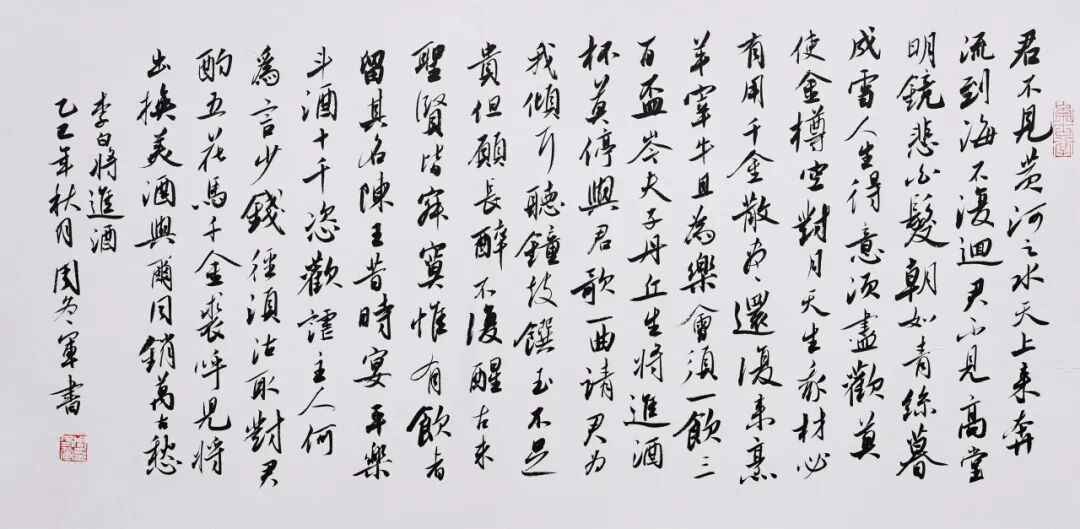 君不見黄河之水天上来奔
流到海不復迴君不見高堂
明鏡悲白髮朝如青絲暮
成雪人生得意須盡歡莫
使金樽空對月天生我材必
有用千金散盡還復来烹
羊宰牛且為樂會須一飲三
百盃岑夫子丹丘生將進酒
杯莫停與君歌一曲請君为
我傾耳聽鐘鼓饌玉不足
貴但願長醉不復醒古来
聖賢皆寂寞惟有飲者
留其名陳王昔時宴平樂
斗酒十千恣歡謔主人何
為言少錢徑須沽取對君
酌五花馬千金裘呼兒將
出換美酒與爾同銷萬古愁
李白將進酒
乙巳年秋月周冬軍書